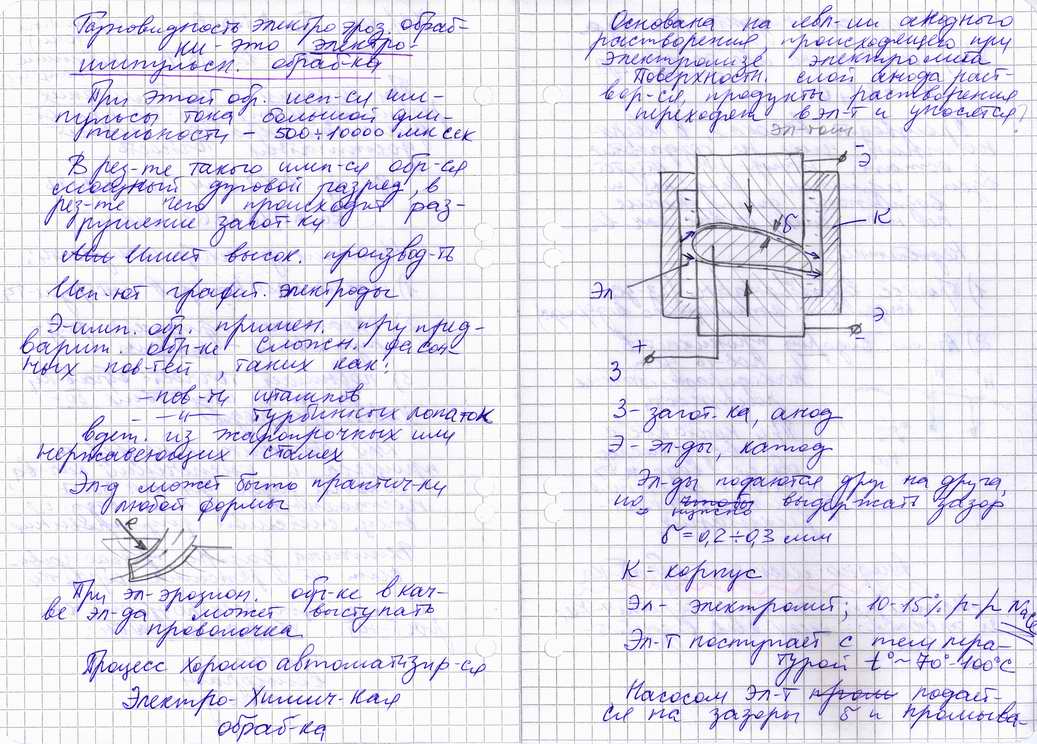 Разновидность электроэроз. обраб-
ки - это электро-
импульсн. обраб-ка
При этой обр. исп-ся им-
пульсы тока большой дли-
тельности - 500÷10000 мксек
В рез-те такого имп-ся обр-ся
сплошный дуговой разряд, в
рез-те чего происходит раз-
рушение загот-ки
Имеет высок. производ-ть
Исп-ют графит. электроды
Э-имп. обр. примен. при пред-
варит. обр-ке сложн. фасон-
ных пов-тей, таких как:
- пов-ти штампов
- —"— турбинных лопаток
из жаропрочных или
нержавеющих сталей
Эл-д может быть практич-ки
любой формы
При эл-эрозион. обр-ке в кач-
ве эл-да может выступать
проволочка
Процесс хорошо автоматизир-ся
Электро-Химич-кая
обраб-ка
Основана на явл-ии анодного
растворения, происходящего при
электролизе электролита
Поверхностн. слой анода раст-
вор-ся, продукты растворения
переходят в эл-т и уносятся?
эл-том
- Э
К
δ
Эл
Э
-
+
З
З - загот-ка, анод
Э - эл-ды, катод
Эл-ды подаются друг на друга,
но нужно выдержать зазор
δ = 0,2÷0,3 мм
К - корпус
Эл - электролит; 10-15% р-р NaCl
Эл-т поступает с темпера-
турой t° ~ 70°-100°С
Насосом Эл-т подает-
ся на зазоры δ и промыва-